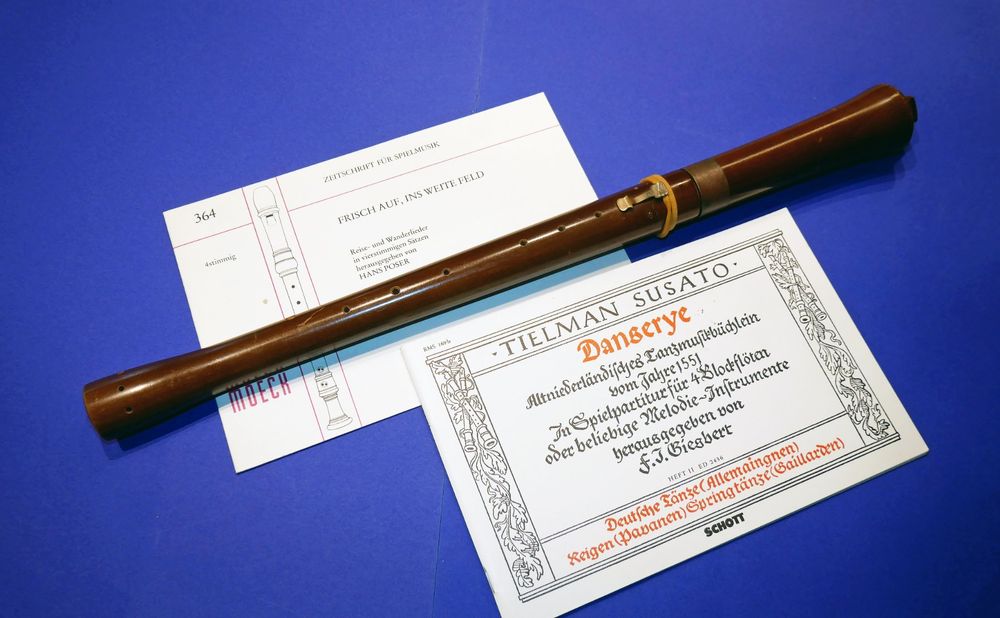 364
ZEITSCHRIFT FÜR SPIELMUSIK
FRISCH AUF, INS WEITE FELD
4stimmig
Reise- und Wanderlieder
in vierstimmigen Sätzen
herausgegeben von
HANS POSER
MOECK
RMS 1695
·TIELMAN SUSATO·
Danserye
Altniederländisches Tanzmusikbüchlein
vom Jahre 1551
In Spielpartitur für 4 Blockflöten
oder beliebige Melodie-Instrumente
herausgegeben von
F. J. Giesbert
HEFT II ED 2436
Deutsche Tänze (Allemaingnen)
Reigen (Pavanen) Springtänze (Gaillarden)
SCHOTT